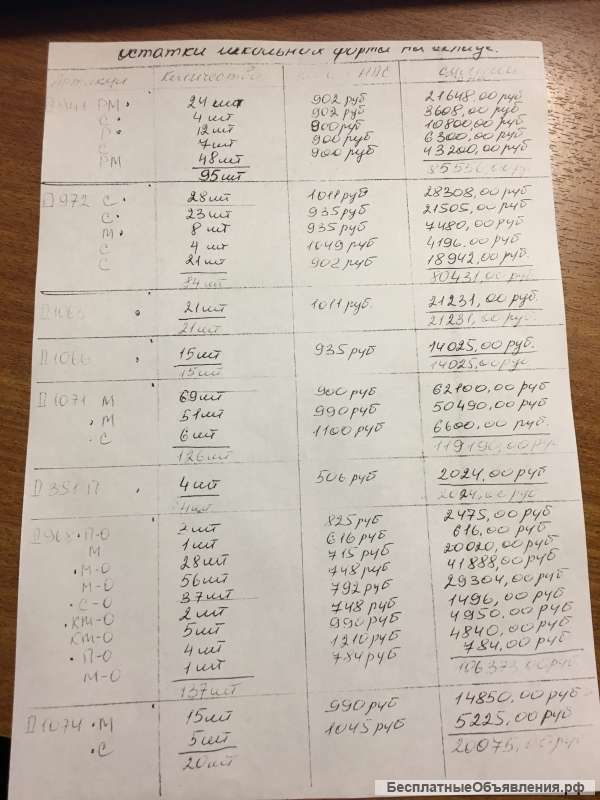 Остатки школьной формы на складе.
Артикул Количество НДС
РМ 24 шт 902 руб 21648,00 руб
С 4 шт 902 руб 3608,00 руб
Р 12 шт 900 руб 10800,00 руб
С 7 шт 900 руб 6300,00 руб
РМ 48 шт 900 руб 43200,00 руб
95 шт 85556,00 руб
П972 С 28 шт 1011 руб 28308,00 руб
С 23 шт 935 руб 21505,00 руб
М 8 шт 935 руб 7480,00 руб
С 4 шт 1049 руб 4196,00 руб
С 21 шт 902 руб 18942,00 руб
84 шт 80431,00 руб
21 шт 1011 руб. 21231,00 руб.
21 шт 21231,00 руб.
П1066 15 шт 935 руб 14025,00 руб.
15 шт 14025,00 руб
П1071 М 69 шт 900 руб 62100,00 руб
М 51 шт 990 руб 50490,00 руб
С 6 шт 1100 руб 6600,00 руб
126 шт 119190,00 руб
П351 П 4 шт 506 руб 2024,00 руб
4 шт 2024,00 руб
П968 П-О 3 шт 825 руб 2475,00 руб
М 1 шт 616 руб 616,00 руб
М-О 28 шт 715 руб 20020,00 руб
М-О 56 шт 748 руб 41888,00 руб
С-О 37 шт 792 руб 29304,00 руб
КМ-О 2 шт 748 руб 1496,00 руб
КМ-О 5 шт 990 руб 4950,00 руб
П-О 4 шт 1210 руб 4840,00 руб
М-О 1 шт 784 руб 784,00 руб
137 шт 106373,00 руб
П1074 М 15 шт 990 руб 14850,00 руб
С 5 шт 1045 руб 5225,00 руб
20 шт 20075,00 руб
БесплатныеОбъявления.рф